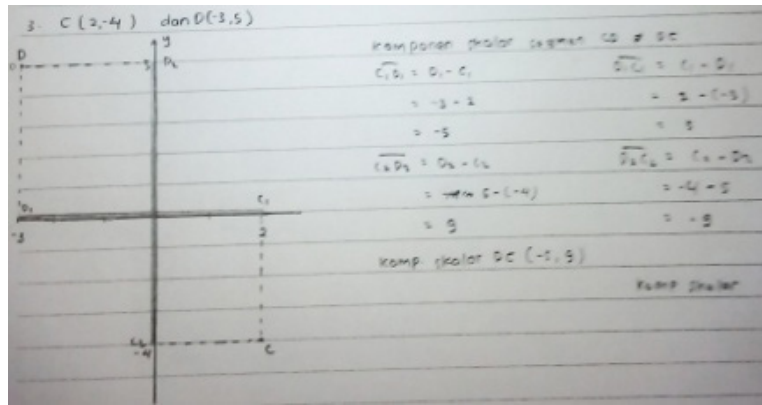 3. C (2,-4) dan D(-3,5)
y
D
5 D₂
D₁ C₁
-3 2
C₂
-4 C
komponen skalar segmen CD & DC
C₁D₁ = D₁ - C₁
= -3 - 2
= -5
C₂D₂ = D₂ - C₂
= 5-(-4)
= 9
komp skalar DC (-5, 9)
D₁C₁ = C₁ - D₁
= 2 - (-3)
= 5
D₂C₂ = C₂ - D₂
= -4 - 5
= -9
komp skalar